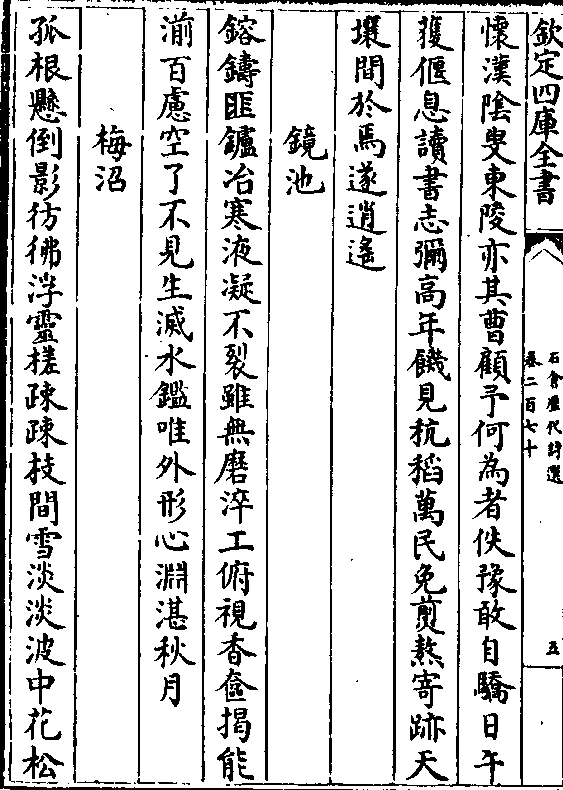 欽定四庫全書
石倉歷代詩選
卷二百七十
五
懷漢陰叟東陵亦其曹顧予何為者佚豫敢自驕日午
蓘偃息讀書志彌高年饑見秔稻萬民免煎熬寄跡天
壤間於焉遂逍遙
鏡池
鎔鑄匪鑪冶寒液凝不裂雖無磨淬工俯視香奩揭能
湔百慮空了不見生滅水鑑唯外形心淵湛秋月
梅沼
孤根懸倒影彷彿浮靈槎疎疎枝間雪淡淡波中花松